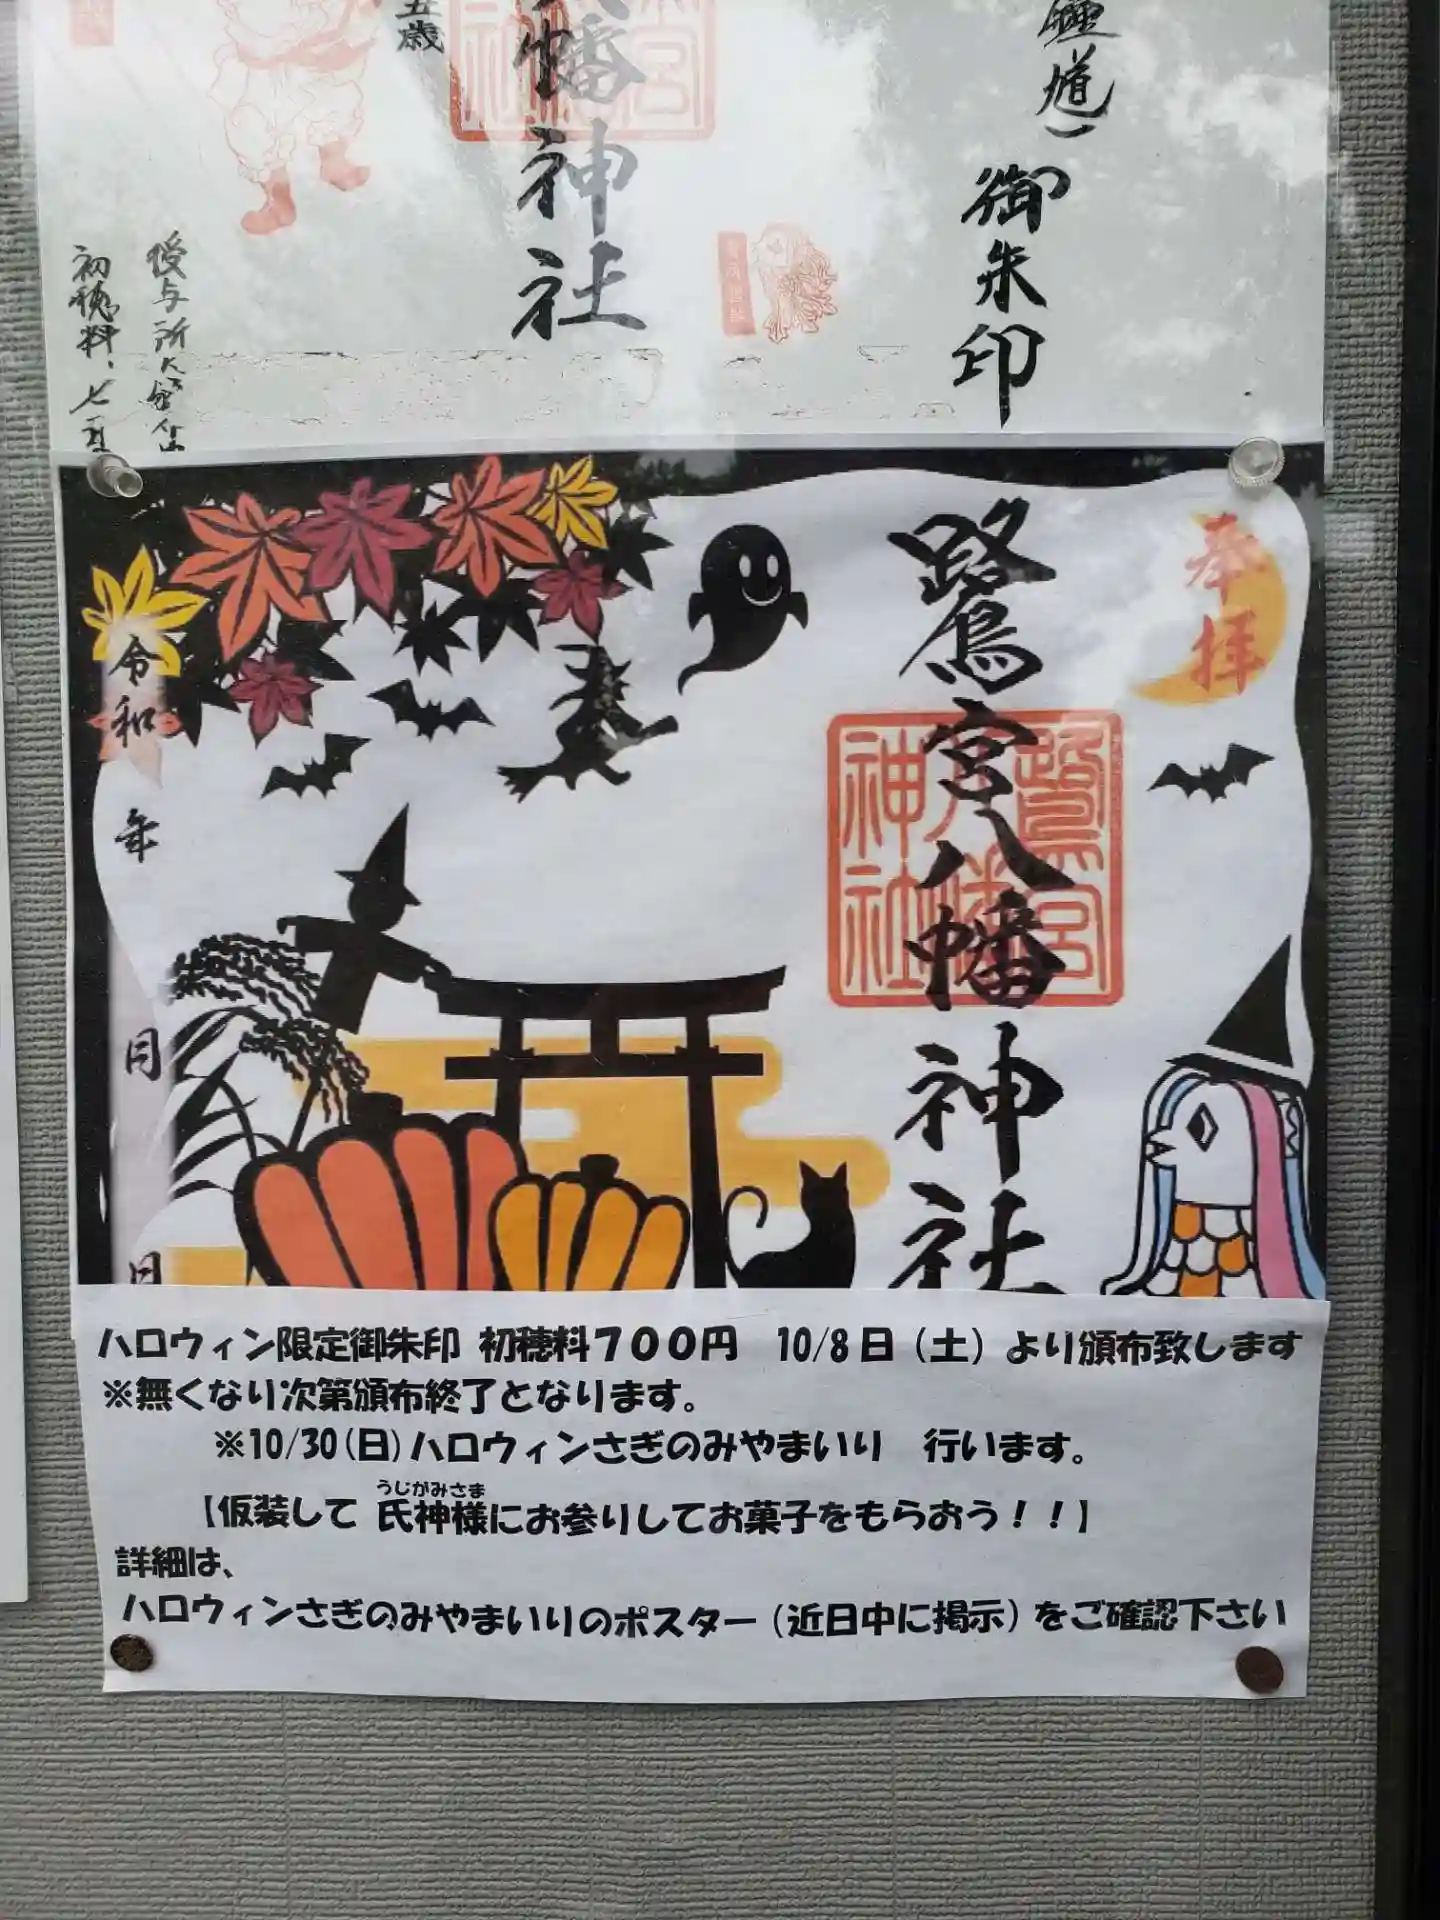 五歳
幡神社
御朱印
授与所
初穂料
奉拝
鷺宮八幡神社
鷺宮
八幡
神社
令和
年
月
日
ハロウィン限定御朱印 初穂料７００円　10/8日（土）より頒布致します
※無くなり次第頒布終了となります。
※10/30(日)ハロウィンさぎのみやまいり　行います。
うじがみさま
【仮装して 氏神様にお参りしてお菓子をもらおう！！】
詳細は、
ハロウィンさぎのみやまいりのポスター（近日中に掲示）をご確認下さい